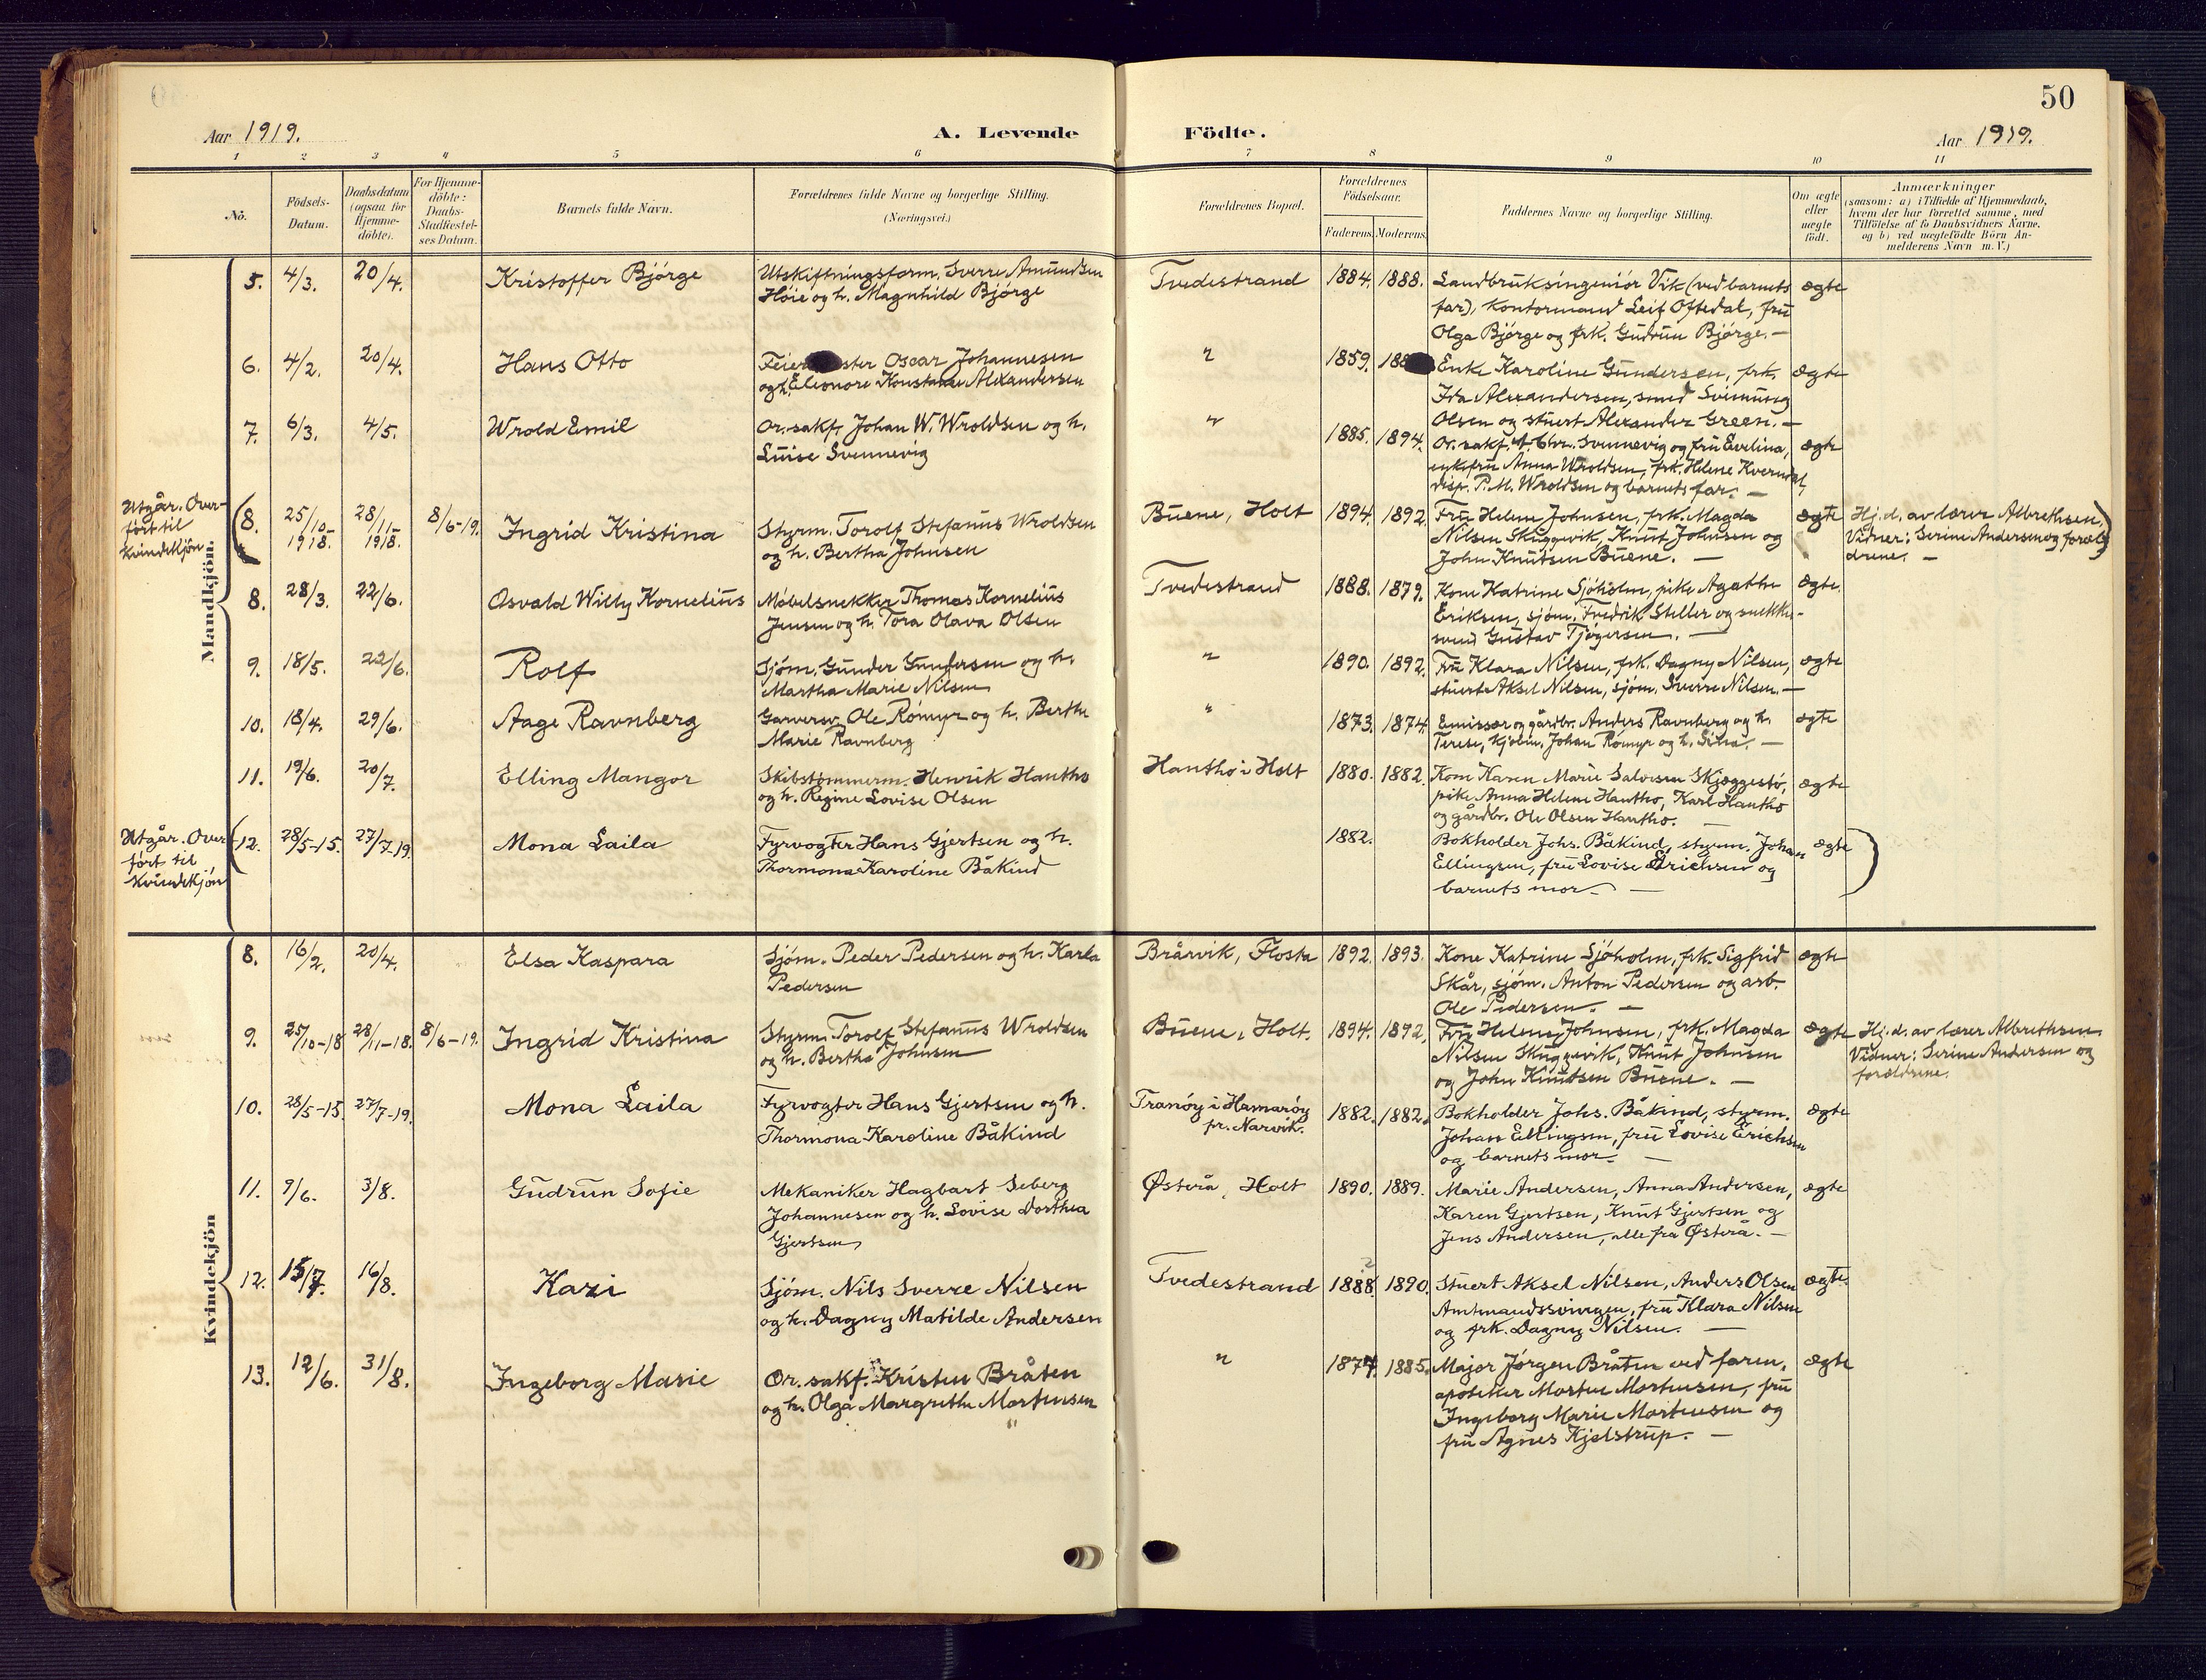 50
Aar 1919.
A. Levende Födte.
Aar 1919.
1 2 3 4 5 6 7 8 9 10 11
No.
Födsels-
Datum.
Daabsdatum
(ogsaa for
Hjemme-
döbte).
For Hjemme-
döbte:
Daabs-
Stadfæstel-
ses Datum.
Barnets fulde Navn.
Forældrenes fulde Navne og borgerlige Stilling.
(Næringsvei.)
Forældrenes Bopæl.
Forældrenes
Födselsaar.
Faderens. Moderens.
Faddernes Navne og borgerlige Stilling.
Om ægte
eller
uægte
födt.
Anmærkninger
(saasom: a) i Tilfælde af Hjemmedaab,
hvem der har forrettet samme, med
Tilföielse af to Daabsvidners Navne.
og b) ved uægtefödte Börn An-
melderens Navn m. V.)
Mandkjön.
5. 4/3. 20/4. Kristoffer Bjórge
Utskiftningsform. Sverre Amundsen
Höie og h. Magnhild Bjórge
Tvedestrand 1884. 1888.
Landbruksingeniór Vik (ved barnets
far), kontormand Leif Oftedal, fru
Olga Bjórge og frk. Gudrun Bjórge. —
ægte
6. 4/2. 20/4. Hans Otto
Oscar Johannesen
og h. Eleonore Konstanse Alexandersen
" 1859.
Enke Karoline Gundersen, frk.
Ida Alexandersen, smed Svinung
Olsen og stuert Alexander Green. —
ægte
7. 6/3. 4/5. Wrold Emil
Or. sakf. Johan W. Wroldsen og h.
Luise Svennevig
" 1885. 1894.
Or. sakf. Chr. Svennevig og fru Evelina,
enkefru Anna Wroldsen, frk. Helene Kverndal,
disp. P. M. Wroldsen og barnets far. —
ægte
Utgår. Over-
fört til
kvindekjön
8. 25/10-1918. 28/11-1918. 8/6-19. Ingrid Kristina
Styrm. Torolf Stefanus Wroldsen
og h. Bertha Johnsen
Buene, Holt 1894. 1892.
Fru Helene Johnsen, frk. Magda
Nilsen Skuggevik, Knut Johnsen og
John Knutsen Buene. —
ægte
Hj. d. av lærer Albrethsen,
Vidner: Serine Andersen og foræl-
drene. —
8. 28/3. 22/6. Osvald Willy Kornelius
Móbelsnekker Thomas Kornelius
Jensen og h. Tora Olava Olsen
Tvedestrand 1888. 1879.
Kone Katrine Sjóholm, pike Agathe
Eriksen, sjóm. Fredrik Steller og snekker-
svend Gustav Tjógersen. —
ægte.
9. 18/5. 22/6. Rolf
Sjóm. Gunder Gundersen og h.
Martha Marie Nilsen
" 1890. 1892.
Fru Klara Nilsen, frk. Dagny Nilsen,
stuert Aksel Nilsen, sjóm. Sverre Nilsen. —
ægte
10. 18/4. 29/6. Aage Ravnberg
Garversv. Ole Rómyr og h. Berthe
Marie Ravnberg
" 1873. 1874.
Emissær og gårdbr. Anders Ravnberg og h.
Terese, kjóbm. Johan Rómyr og h. Silva. —
ægte
11. 19/6. 20/7. Elling Mangor
Skibstømmerm. Henrik Hantho
og h. Regine Lovise Olsen
Hantho i Holt 1880. 1882.
Kone Karen Marie Salvesen Skjæggestó,
pike Anna Helene Hantho, Karl Hantho
og gårdbr. Ole Olsen Hantho. —
ægte
Utgår. Over
fört til
kvindekjön
12. 28/5-15. 27/7-19. Mona Laila
Fyrvogter Hans Gjertsen og h.
Thormona Karoline Båkind
1882.
Bokholder Johs. Båkind, styrm. Johan
Ellingsen, fru Lovise Erichsen og
barnets mor. —
ægte
Kvindekjön
8. 16/2. 20/4. Elsa Kaspara
Sjóm. Peder Pedersen og h. Karla
Pedersen
Brårvik, Flosta 1892. 1893.
Kone Katrine Sjóholm, frk. Sigfrid
Skår, sjóm. Anton Pedersen og arb.
Ole Pedersen. —
ægte
9. 25/10-18 28/11-18. 8/6-19. Ingrid Kristina
Styrm. Torolf Stefanus Wroldsen
og h. Bertha Johnsen
Buene, Holt. 1894. 1892.
Fru Helene Johnsen, frk. Magda
Nilsen Skuggevik, Knut Johnsen
og John Knutsen Buene. —
ægte
Hj. d. av lærer Albrethsen.
Vidner: Serine Andersen og
forældrene.
10. 28/5-15. 27/7-19. Mona Laila
Fyrvogter Hans Gjertsen og h.
Thormona Karoline Båkind
Tranóy i Hamaróy
pr. Narvik. 1882. 1882.
Bokholder Johs. Båkind, styrm.
Johan Ellingsen, fru Lovise Erichsen
og barnets mor. —
ægte
11. 9/6. 3/8. Gudrun Sofie
Mekaniker Hagbart Seberg
Johannesen og h. Lovise Dorthea
Gjertsen
Østerå, Holt 1890. 1889.
Marie Andersen, Anna Andersen,
Karen Gjertsen, Knut Gjertsen og
Jens Andersen, alle fra Østerå. —
ægte
12. 15/7. 16/8. Kari
Sjóm. Nils Sverre Nilsen
og h. Dagny Matilde Andersen
Tvedestrand 1888. 1890.
Stuert Aksel Nilsen, Anders Olsen
Amtmandssvingen, fru Klara Nilsen
og frk. Dagny Nilsen. —
ægte.
13. 12/6. 31/8. Ingeborg Marie
Or. sakf. Kristen Bråten
og h. Olga Margrethe Mortensen
" 1874. 1885.
Major Jórgen Bråten ved faren,
apoteker Morten Mortensen, fru
Ingeborg Marie Mortensen og
fru Agnes Kjelstrup. —
ægte